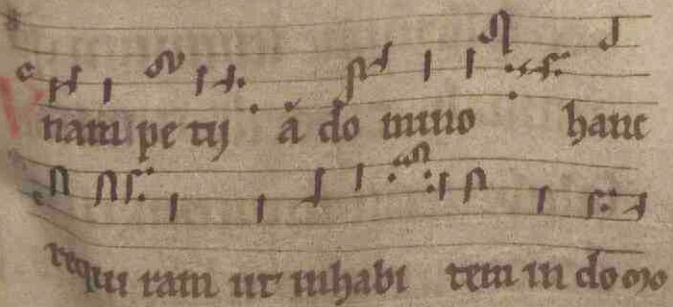 Unam pe tij a do mino hanc
requi ram ut inhabi tem in domo